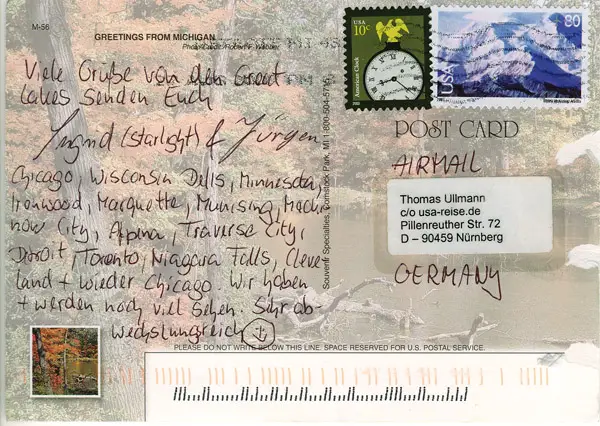 M-56
GREETINGS FROM MICHIGAN
Photo Credit: Robert F. Webber
Viele Grüße von den Great
Lakes senden Euch
Ingrid (starlight) & Jürgen
Chicago, Wisconsin Dells, Minnesota,
Ironwood, Marquette, Munising, Macki-
naw City, Alpena, Traverse City,
Detroit, Toronto, Niagara Falls, Cleve-
land + wieder Chicago. Wir haben
+ werden noch viel sehen. Sehr ab-
wechslungsreich
Souvenir Specialties, Comstock Park, MI 1-800-504-
USA
10c
American Clock
2003
USA
80
POST CARD
AIRMAIL
Thomas Ullmann
c/o usa-reise.de
Pillenreuther Str. 72
D – 90459 Nürnberg
GERMANY
PLEASE DO NOT WRITE BELOW THIS LINE. SPACE RESERVED FOR U.S. POSTAL SERVICE.